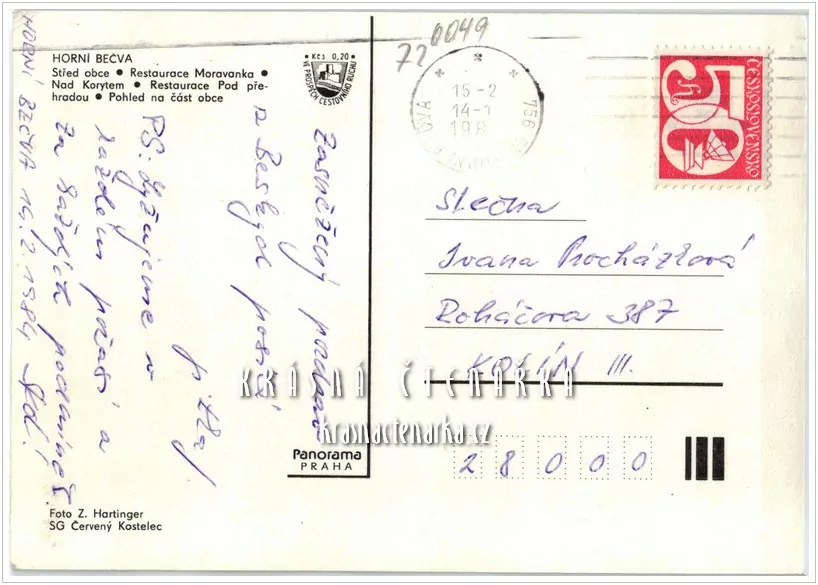 HORNÍ BEČVA
Střed obce • Restaurace Moravanka •
Nad Korytem • Restaurace Pod pře-
hradou • Pohled na část obce
• Kčs 0,20 •
VE PROSPĚCH CESTOVNÍHO RUCHU
72 0049
15-2
14-1
198
756
ČESKOSLOVENSKO
50
h
Zasněžený pozdrav
z Beskyd posílá
PS: Lyžujeme v
každém počasí a
za každých podmínek.
HORNÍ BEČVA 14.2.1984
Slečna
Ivana Procházková
Roháčova 387
KOLÍN III.
28000
KRÁSNÁ ČTENÁŘKA
krasnactenarka.cz
Panorama
PRAHA
Foto Z. Hartinger
SG Červený Kostelec